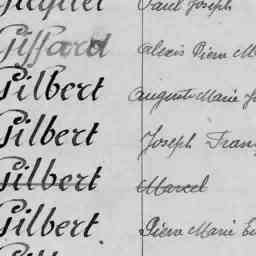 Paul Joseph
Giffard Alexis Pierre M
Gilbert Auguste Marie J
Gilbert Joseph Fran
Gilbert Marcel
Gilbert Pierre Marie E